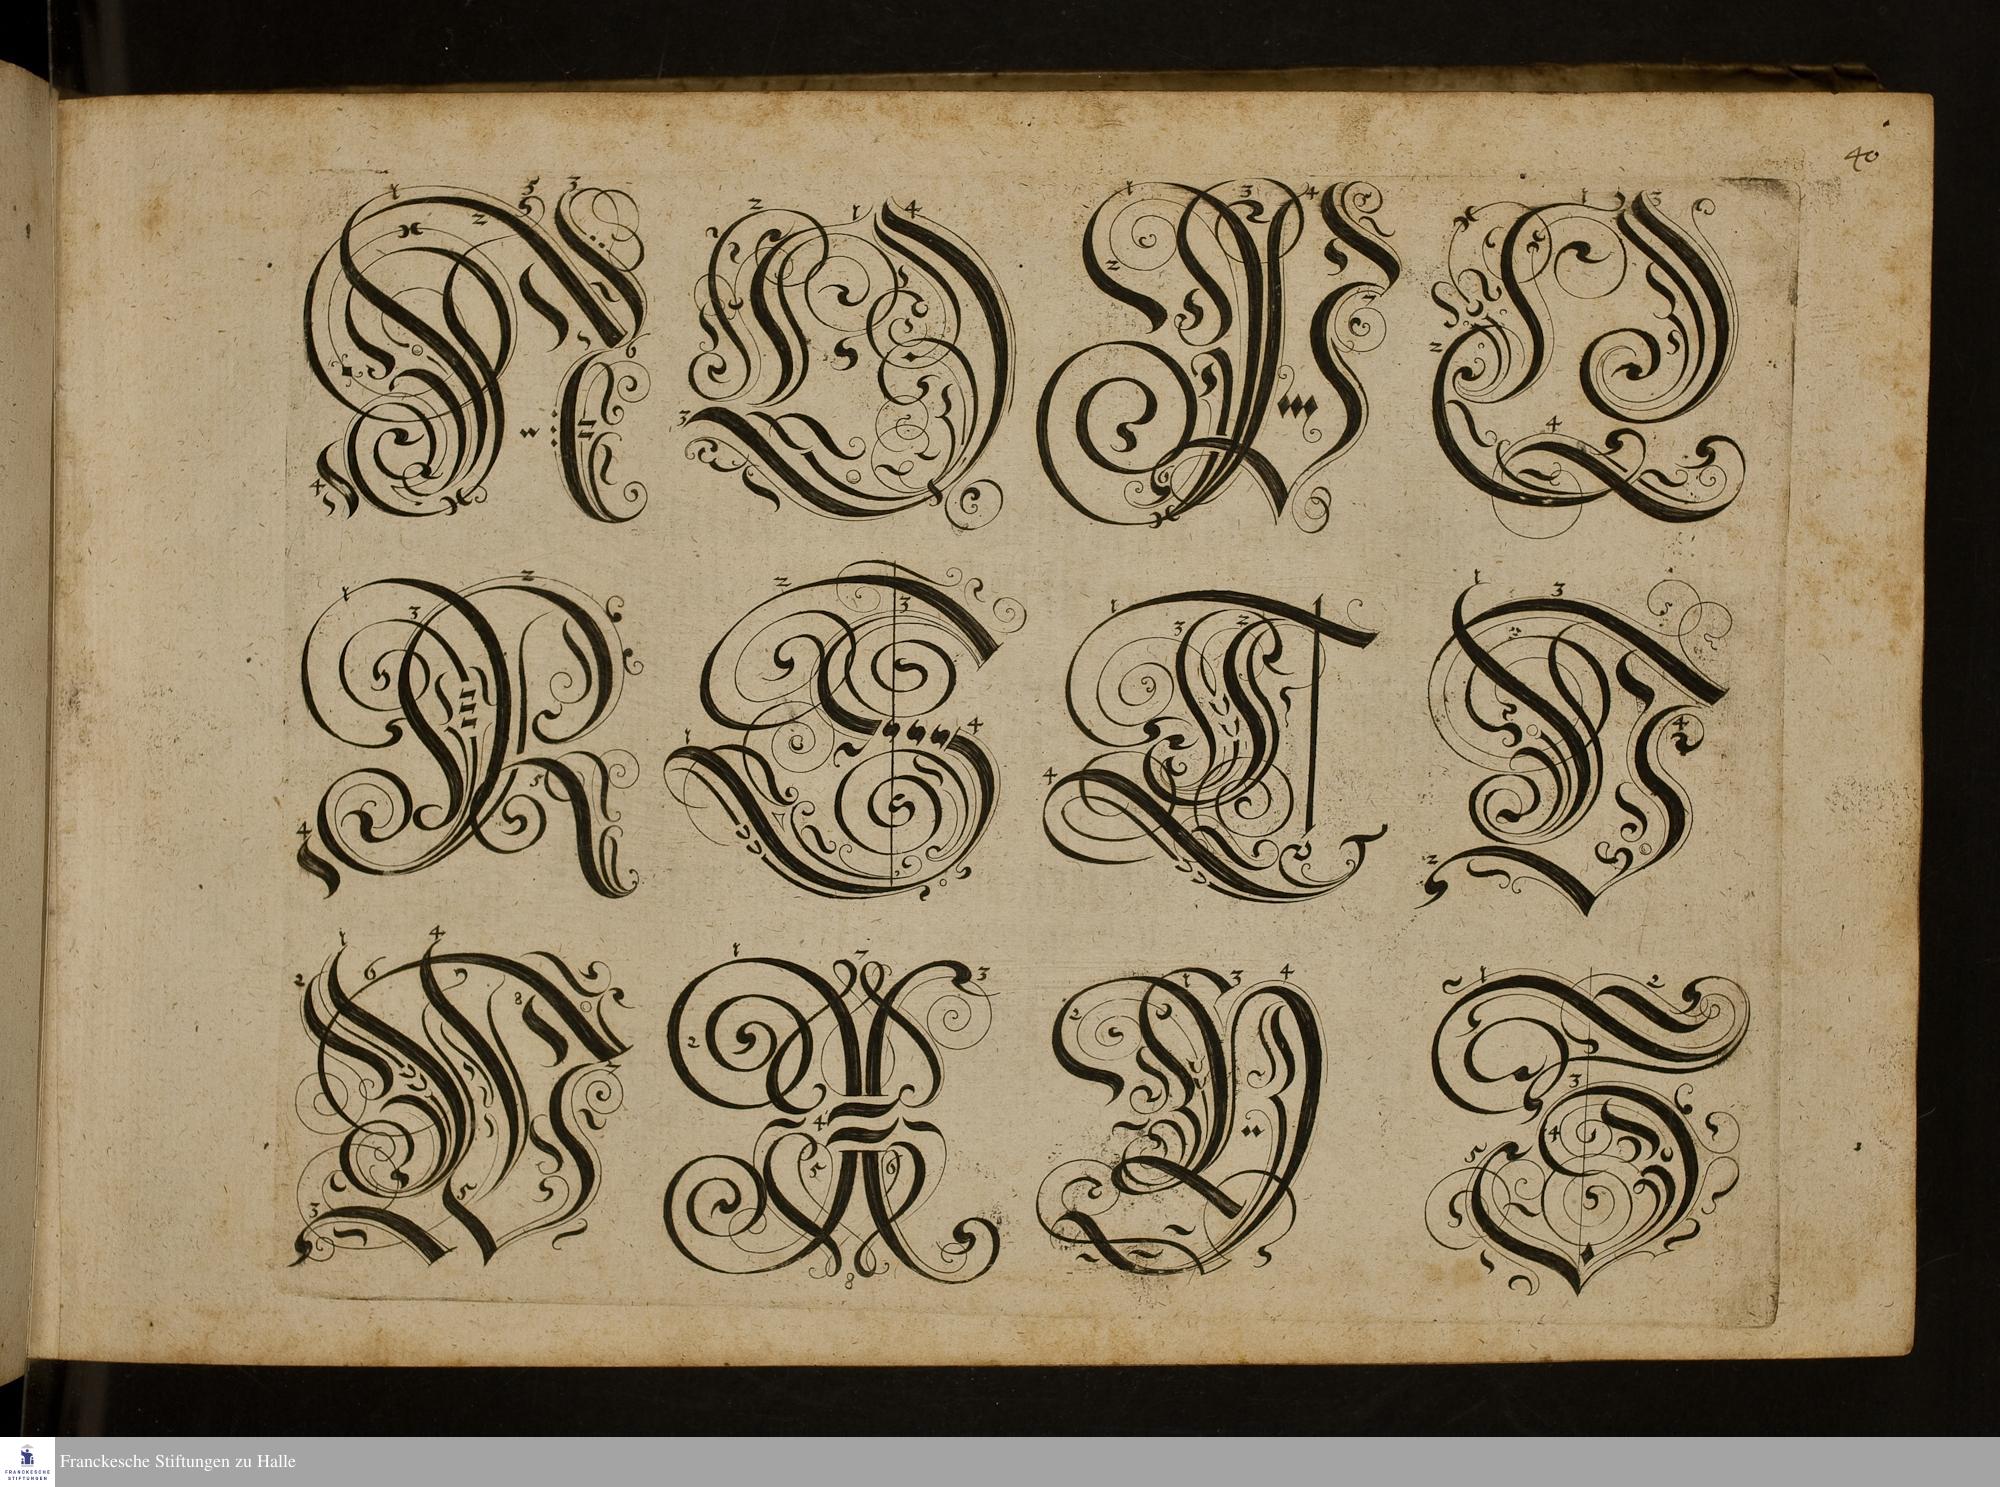 40
N O P Q
R S T V
W X Y Z
Franckesche Stiftungen zu Halle
FRANCKESCHE
STIFTUNGEN